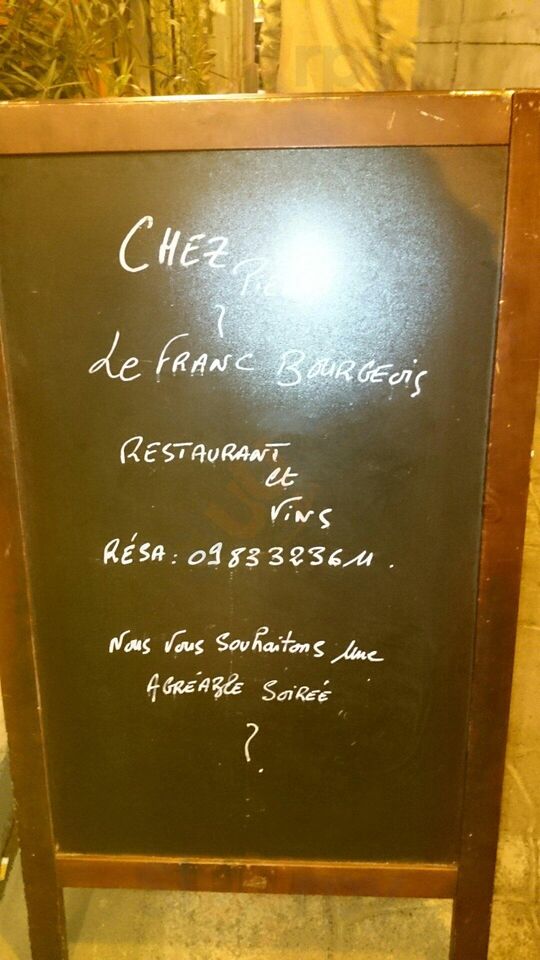 CHEZ
Le FRANC BOURGEOIS
RESTAURANT
et
VINS
RÉSA : 0983323611.
Nous Vous Souhaitons Une
AGRÉABLE SOIREÉ